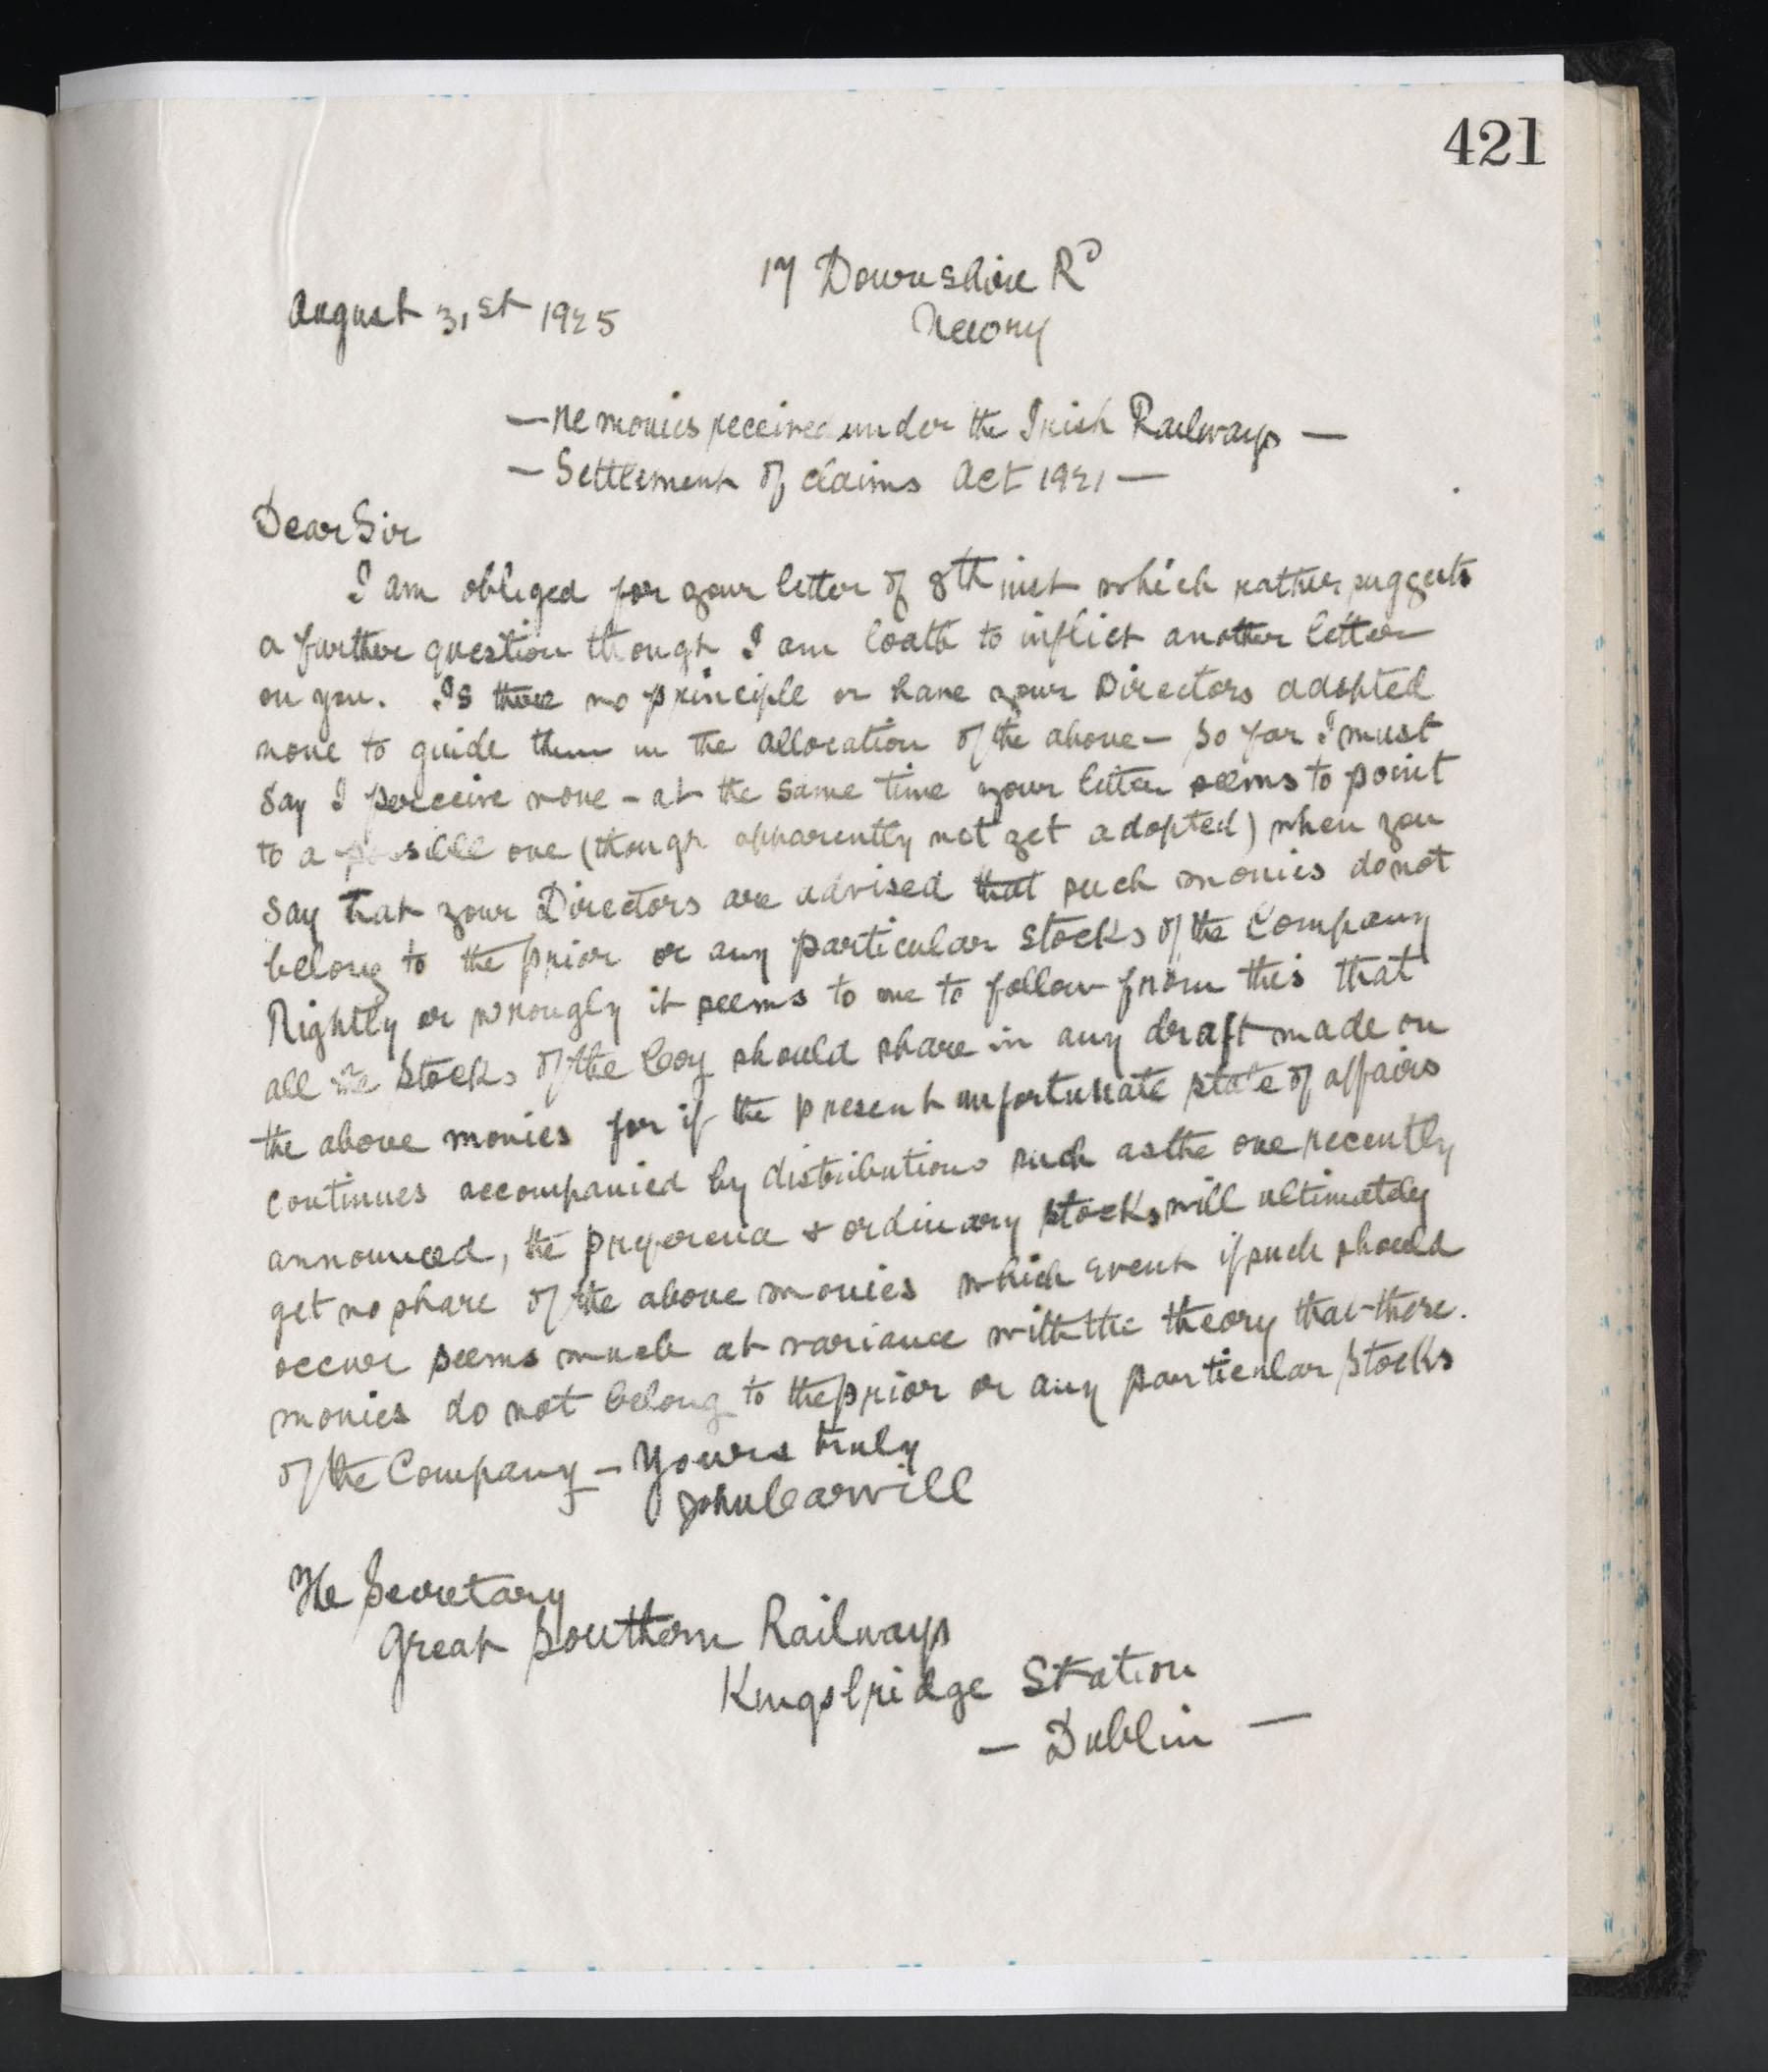 421
17 Downshire Rd
August 31st 1925
Newry
— Re monies received under the Irish Railways —
— Settlement of Claims Act 1921 —
Dear Sir
I am obliged for your letter of 8th inst which rather suggests
a further question though I am loath to inflict another letter
on you. Is there no principle or have your Directors adopted
none to guide them in the allocation of the above — So far I must
say I perceive none - at the same time your letter seems to point
to a possible one (though apparently not yet adopted) when you
say that your Directors are advised that such monies do not
belong to the prior or any particular stocks of the Company
Rightly or wrongly it seems to me to follow from this that
all the Stocks of the Coy should share in any draft made on
the above monies for if the present unfortunate state of affairs
continues accompanied by distributions such as the one recently
announced, the preference & ordinary stocks will ultimately
get no share of the above monies which event if such should
occur seems much at variance with the theory that these
monies do not belong to the prior or any particular stocks
of the Company — Yours truly
John Carvill
The Secretary
Great Southern Railways
Kingsbridge Station
— Dublin —